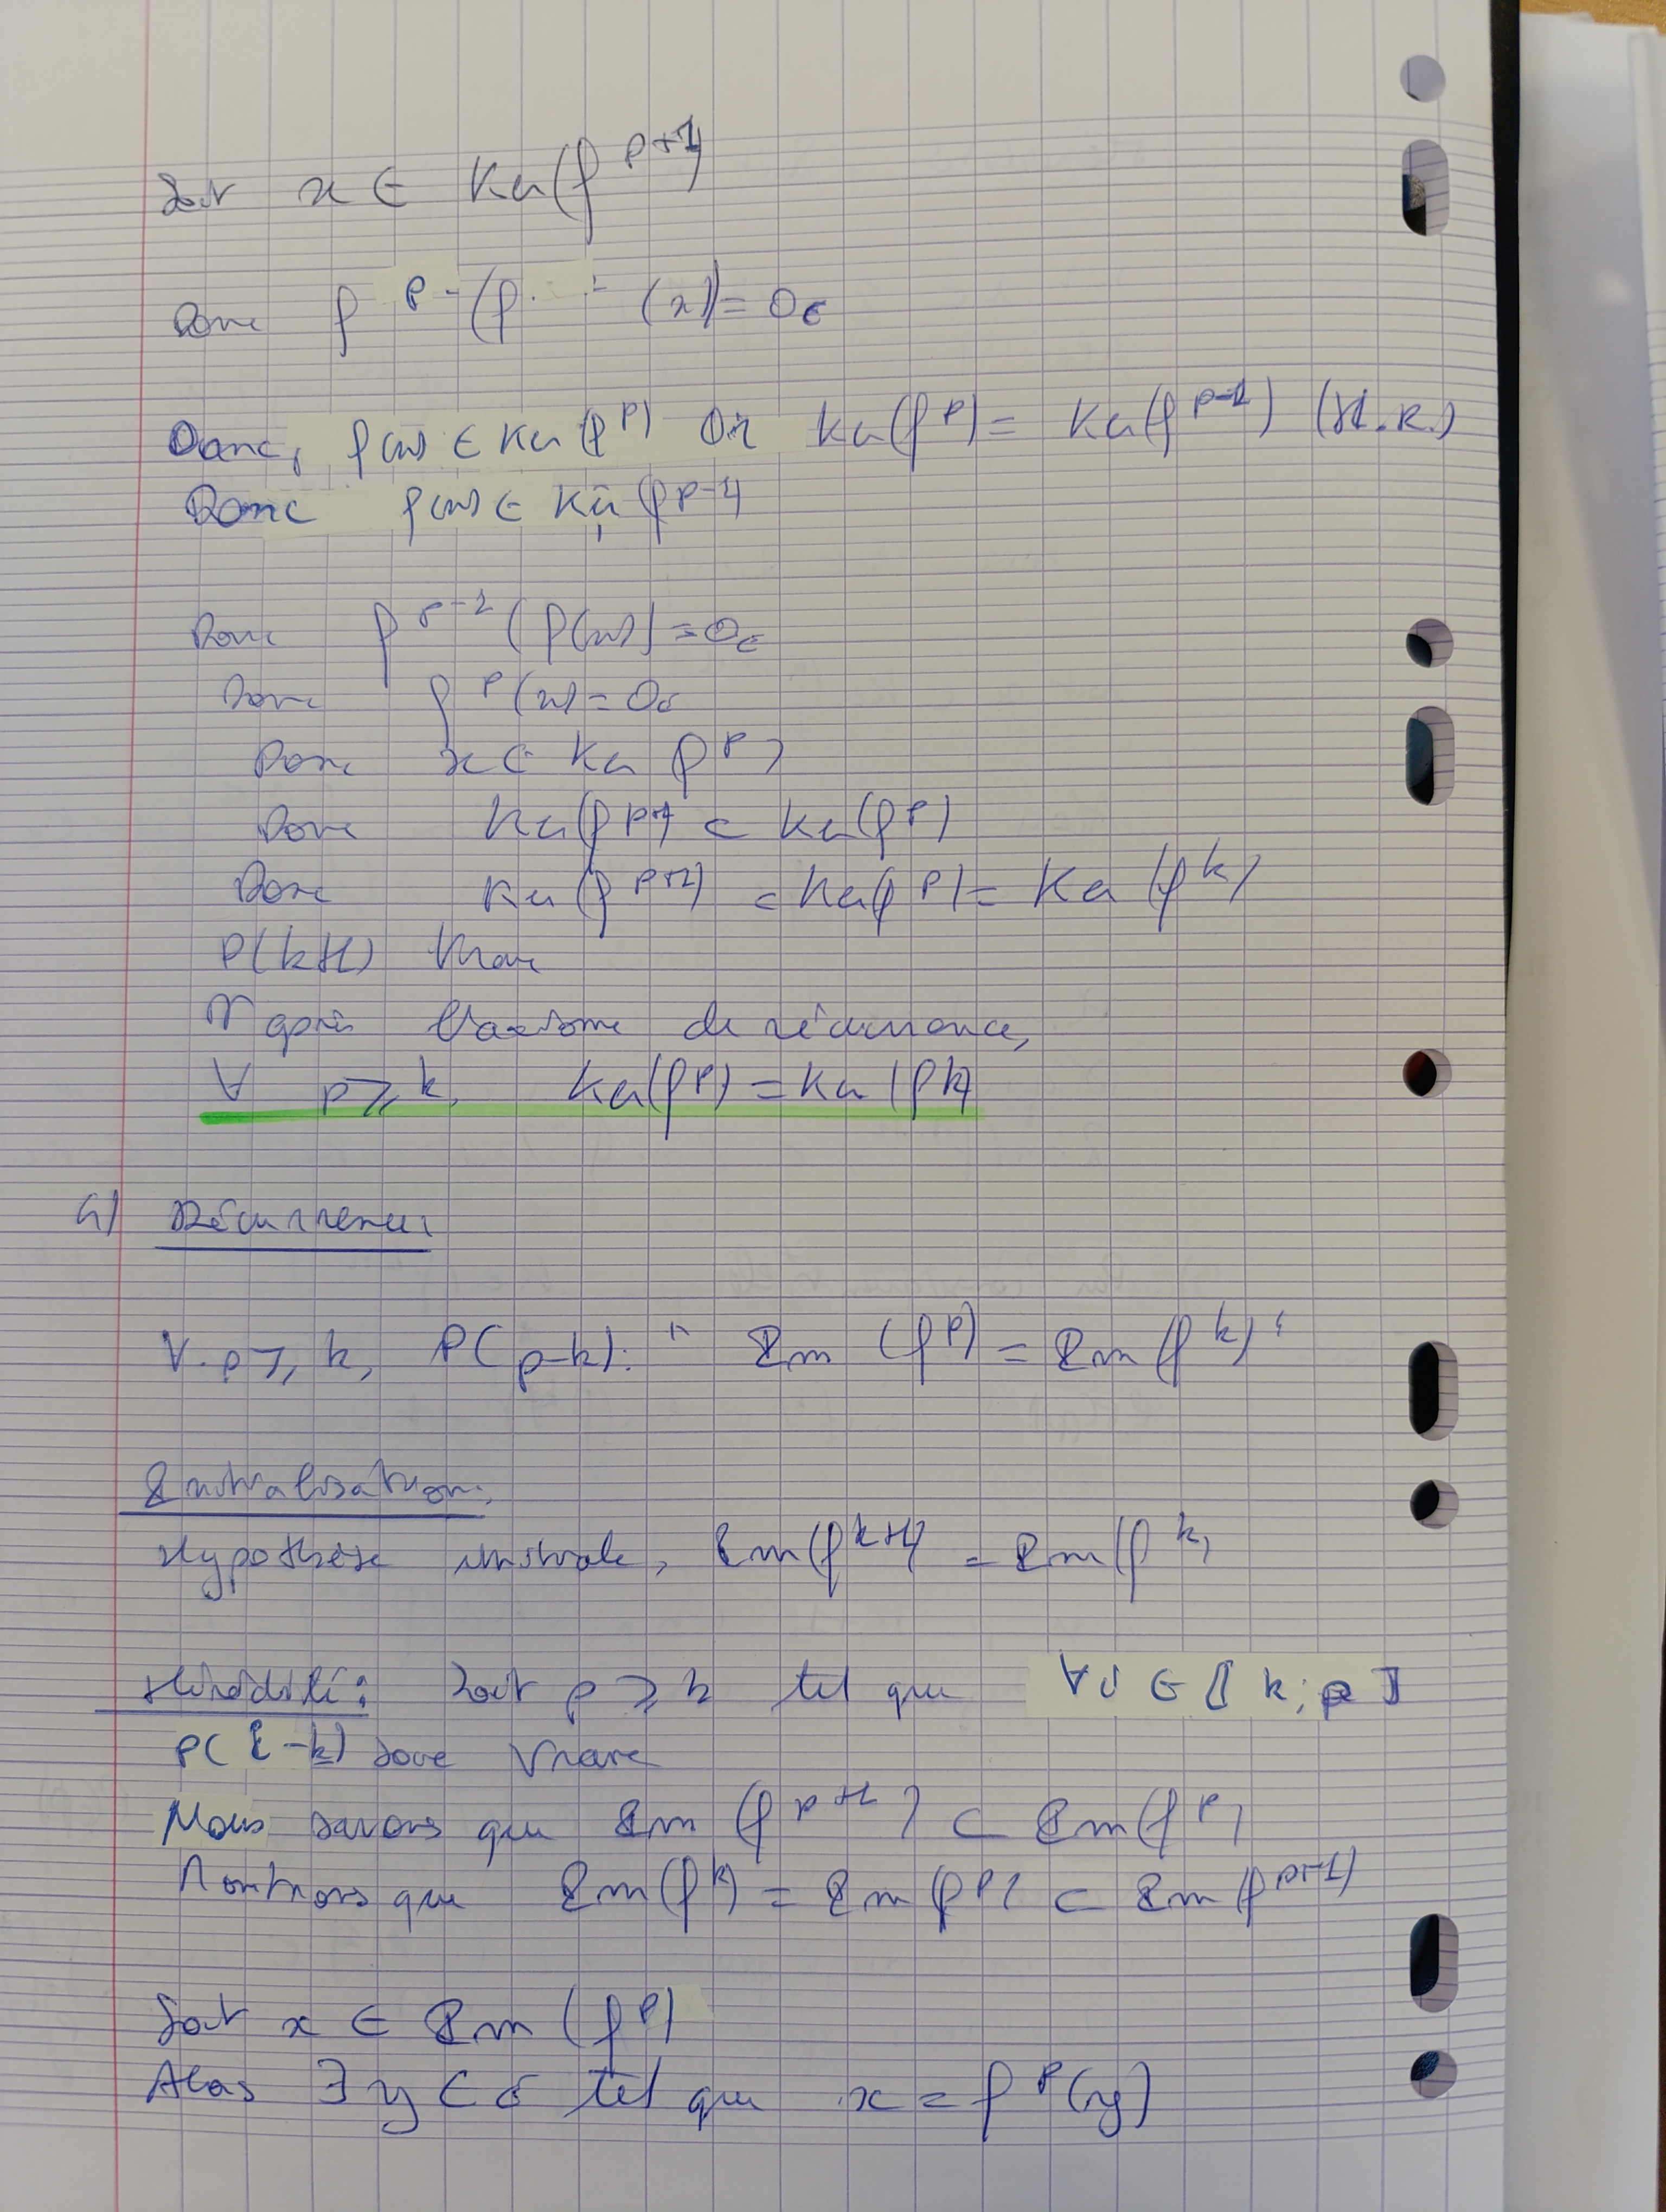 Soit x ∈ Ker(f^{p+1})
Donc f^p (f (x)) = 0_E
Donc, f(x) ∈ Ker(f^p) Or Ker(f^p) = Ker(f^{p-1}) (H.R.)
Donc f(x) ∈ Ker(f^{p-1})
Donc f^{p-1}(f(x)) = 0_E
Donc f^p(x) = 0_E
Donc x ∈ Ker f^p)
Donc Ker(f^{p+1}) ⊂ Ker(f^p)
Donc Ker(f^{p+1}) = Ker(f^p) = Ker(f^k)
P(k+1) Vraie
D'après l'axiome de récurrence,
∀ p ≥ k, Ker(f^p) = Ker(f^k)
4) Récurrence:
∀ p ≥ k, P(p-k): " Im (f^p) = Im (f^k) "
Initialisation:
Hypothèse initiale, Im(f^{k+1}) = Im(f^k)
Hérédité: Soit p ≥ k tel que ∀ i ∈ ⟦k; p⟧
P(i-k) soie Vraie
Nous savons que Im (f^{p+1}) ⊂ Im(f^p)
Montrons que Im(f^k) = Im(f^p) ⊂ Im(f^{p+1})
Soit x ∈ Im (f^p)
Alors ∃ y ∈ E tel que x = f^p(y)